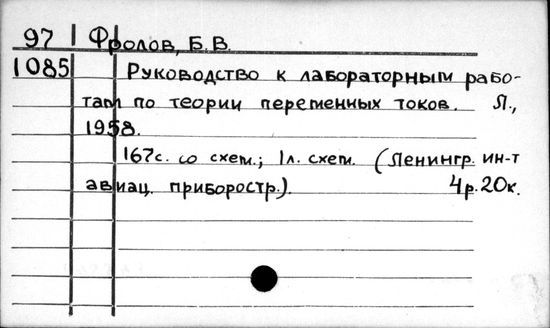 97 Фролов, Б.В.
1085 Руководство к лабораторным рабо-
там по теории переменных токов. Л.,
1958.
167с. со схем.; 1л. схем. (Ленингр. ин-т
авиац. приборостр.). 4р.20к.